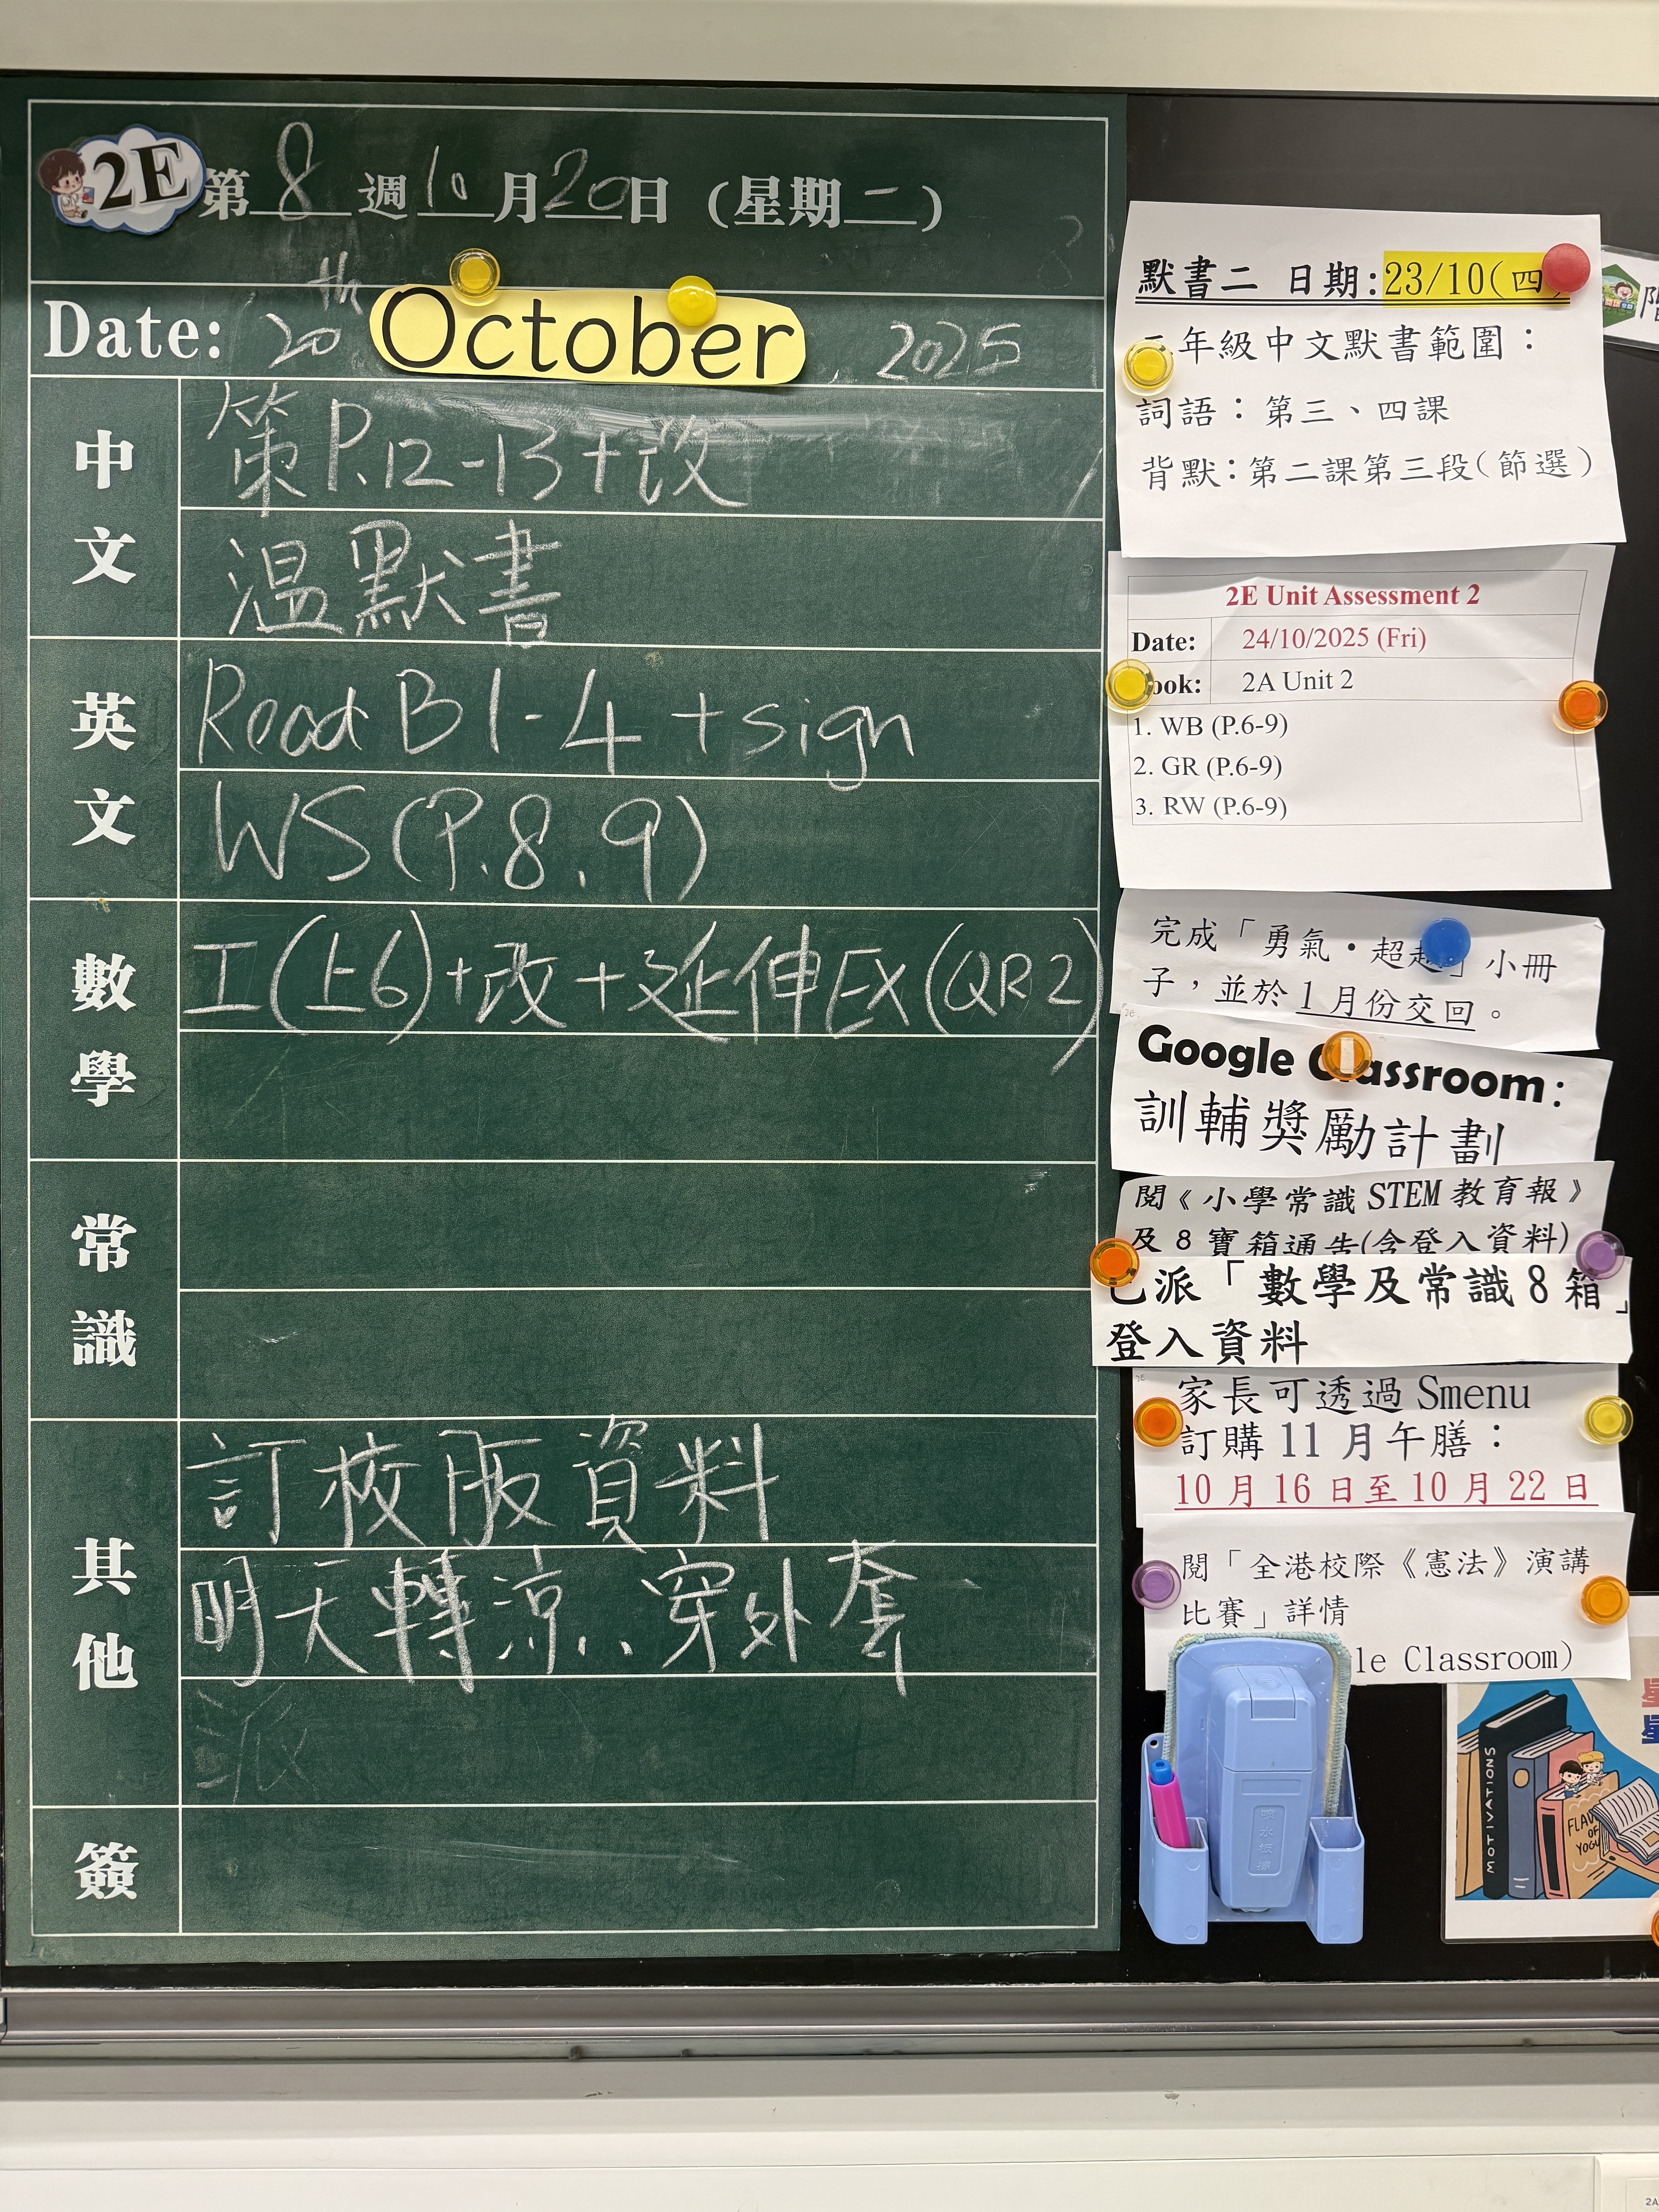 2E 第8週10月20日(星期二)
Date: 20th October, 2025
中文
策P.12-13+改
温默書
英文
Read B1-4 + sign
WS(P.8, 9)
數學
工(上6)+改+延伸EX(QR2)
常識
其他
訂校服資料
明天轉涼,穿外套
派
簽
默書二 日期:23/10(四
年級中文默書範圍:
詞語:第三、四課
背默:第二課第三段(節選)
2E Unit Assessment 2
Date: 24/10/2025 (Fri)
ook: 2A Unit 2
1. WB (P.6-9)
2. GR (P.6-9)
3. RW (P.6-9)
完成「勇氣•超越」小冊
子,並於1月份交回。
Google Classroom:
訓輔獎勵計劃
閱《小學常識STEM教育報》
及8寶箱通告(含登入資料)
已派「數學及常識8箱」
登入資料
家長可透過Smenu
訂購11月午膳:
10月16日至10月22日
閱「全港校際《憲法》演講
比賽」詳情
le Classroom)
MOTIVATIONS
FLAV
OF
YOGU
2A